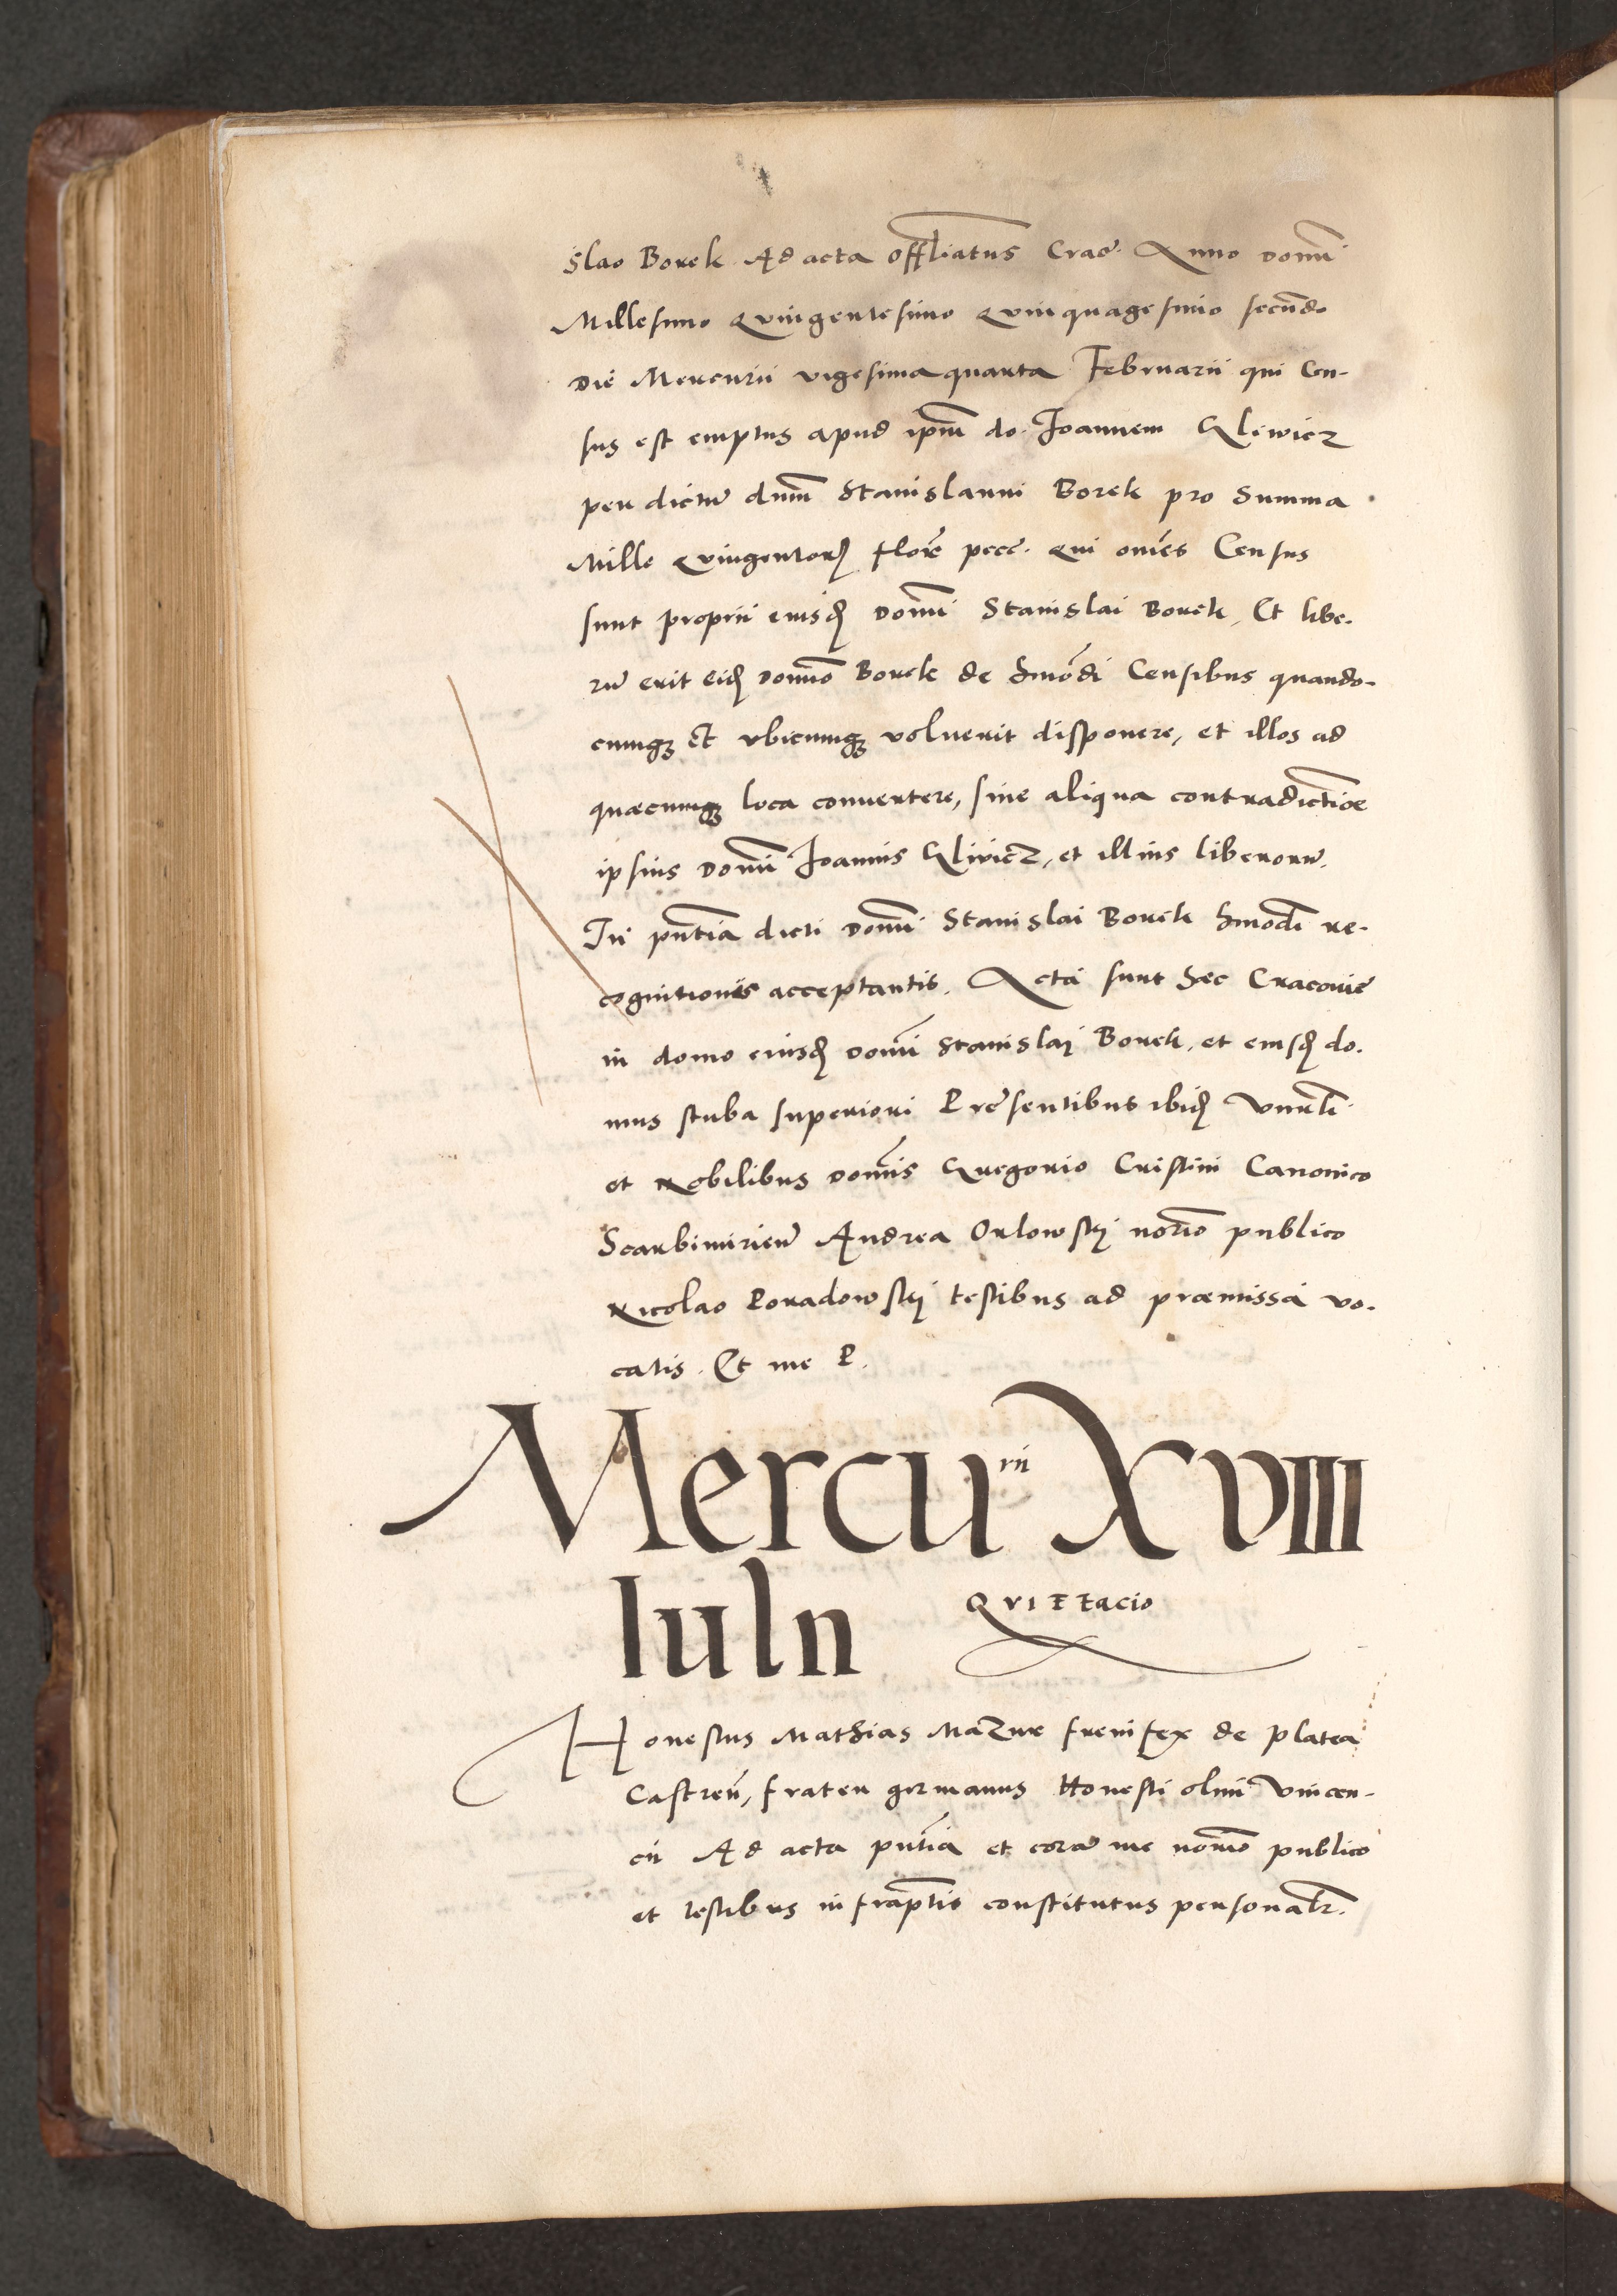 slao Borek Ad acta offliatus Crac̃. Anno domi̅
Millesimo Quingentesimo Quinquagesimo secũdo
Die Mercurii vigesimaquarta Februarii qui Cen-
sus est emptus apud ip̅m do. Joannem Gliwicz
per dictũ dnm̅ Stanislaum Borek pro Summa
Mille Quingentorꝝ florẽ pecc̃. Qui om̃es Census
sunt proprii eiusꝺ domi̅ Stanislai Borek, Et libe-
rũ erit eiꝺ domi̅o Borek de hmo̅di Censibus quando-
cunqꝫ Et vbicunqꝫ voluerit disponere, et illos ad
quæcunqꝫ loca conuertere, sine aliqua contradicti̅oe
ipsius domi̅ Joannis Glivicz, et illius liberorũ.
In pn̅tia dicti domi̅ Stanislai Borek hmo̅di re-
cognitionis acceptantis. Acta sunt hæc Cracoviẽ
in domo eiusꝺ domi̅ Stanislaj Borek, et eiusꝺ do-
mus stuba superiori Prẽsentibus ibiꝺ Vnrl̅i
et Nobilibus domi̅s Gregorio Cristini Canonico
Scarbimirieñ Andrea Orlowskj nori̅o publico
Nicolao Poradowskj testibus ad præmissa vo-
catis. Et me P.
Mercurii XVIII
Iulii QVIETTacio
Honestus Mathias Mazur frenifex de platea
Castreñ, frater germanus Honesti olim Vincen-
cii Ad acta pn̅tia et corã me nori̅o publico
et testibus infrap̅tis constitutus personal̅r.